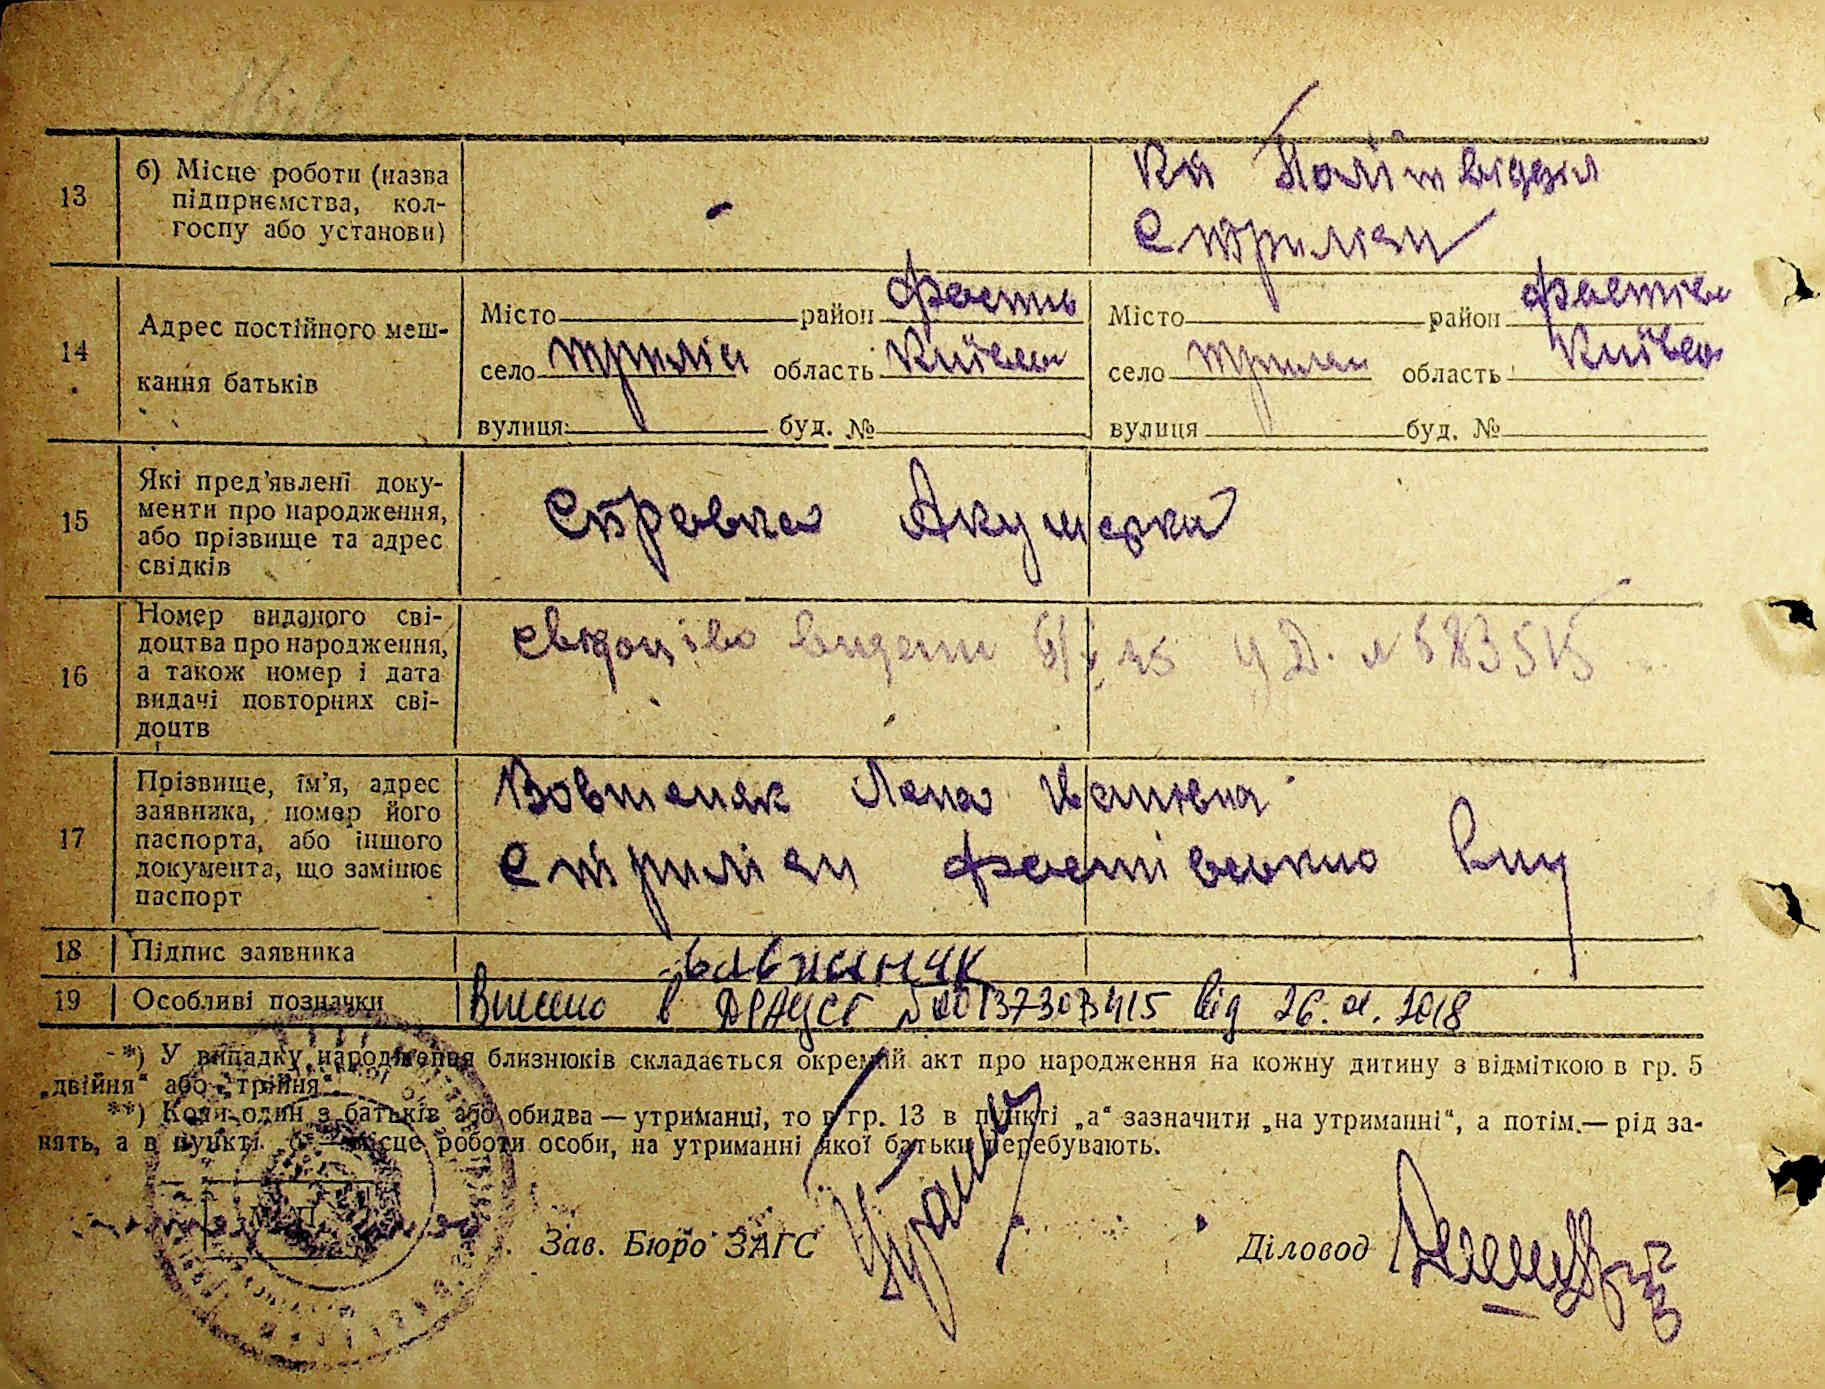 13
б) Місце роботи (назва
підприємства, кол-
госпу або установи)
-
Кп Політвідділ
с Трилєси
14
Адрес постійного меш-
кання батьків
Місто район Фастів
село Триліси область Київськ
вулиця буд. №
Місто район Фастівсь
село Триліси область Київсь
вулиця буд. №
15
Які пред'явлені доку-
менти про народження,
або прізвище та адрес
свідків
Справка Акушерки
16
Номер виданого сві-
доцтва про народження,
а також номер і дата
видачі повторних сві-
доцтв
видани 45 УД. №
17
Прізвище, ім'я, адрес
заявника, номер його
паспорта, або іншого
документа, що замінює
паспорт
Вовшеняк Івановна
с Триліси Фастівського
18
Підпис заявника
19
Особливі позначки
Внесено в ДРАЦСГ № 00137303415 від 26. 01. 2018
*) У випадку народження близнюків складається окремий акт про народження на кожну дитину з відміткою в гр. 5
„двійня" або „трійня".
**) Коли один з батьків або обидва — утриманці, то в гр. 13 в пункті „а" зазначити „на утриманні", а потім — рід за-
нять, а в пункті „б" — місце роботи особи, на утриманні якої батьки перебувають.
М. П.
Зав. Бюро ЗАГС
Діловод